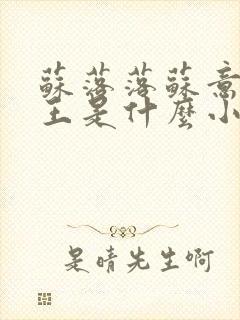 蘇落落蘇意
王是什麼小
是晴先生啊